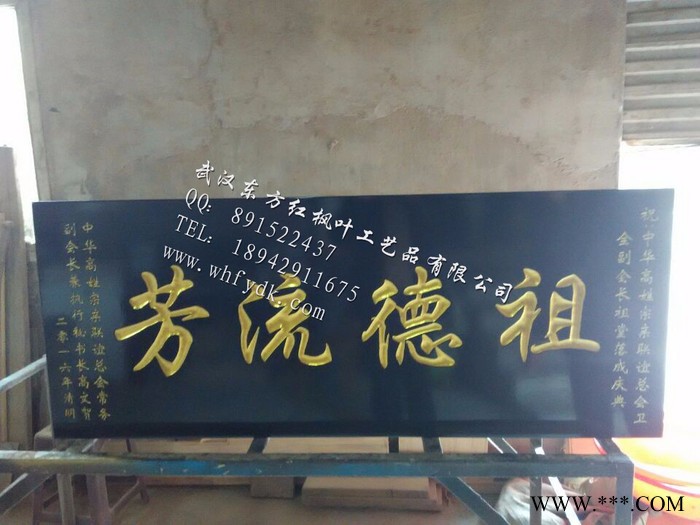 祝中华高姓宗亲联谊总会卫
金副会长祖堂落成庆典
祖德流芳
中华高姓宗亲联谊总会常务
副会长兼执行秘书长高文
二零一六年清明
武汉东方红枫叶工艺品有限公司
QQ: 891522437
TEL: 18942911675
www.whfydk.com
WWW.***.COM